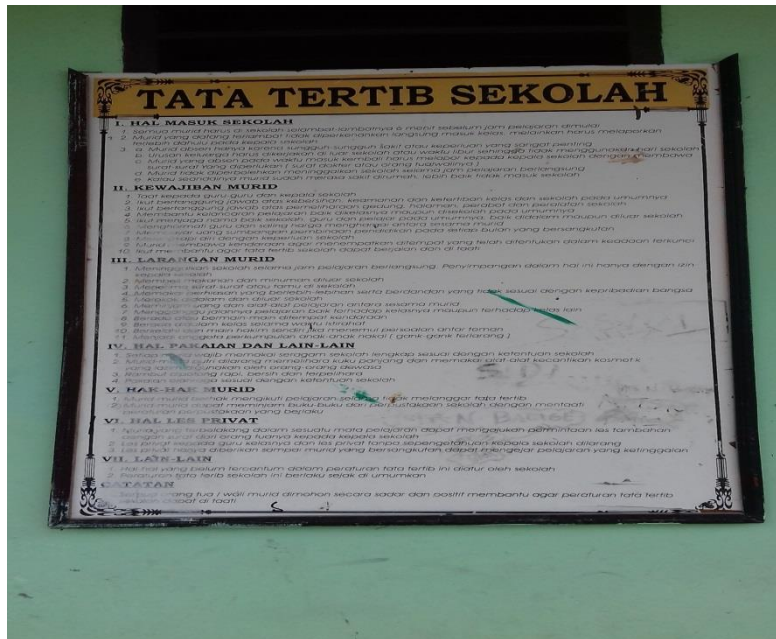 TATA TERTIB SEKOLAH
I. HAL MASUK SEKOLAH
1. Semua murid harus di sekolah selambat-lambatnya 5 menit sebelum jam pelajaran dimulai
2. Murid yang datang terlambat tidak diperkenankan langsung masuk kelas, melainkan harus melaporkan
terlebih dahulu kepada kepala sekolah
3. a. Murid absen hanya karena sungguh-sungguh sakit atau keperluan yang sangat penting
b. Urusan keluarga harus dikerjakan di luar sekolah atau waktu libur sehingga tidak menggunakan hari sekolah
c. Murid yang absen pada waktu masuk kembali harus melapor kepada kepala sekolah dengan membawa
surat-surat yang diperlukan ( surat dokter atau orang tua/walinya )
d. Murid tidak diperbolehkan meninggalkan sekolah selama jam pelajaran berlangsung
e. Kalau seandainya murid sudah merasa sakit dirumah, lebih baik tidak masuk sekolah
II. KEWAJIBAN MURID
1. Taat kepada guru guru dan kepala sekolah
2. Ikut bertanggung jawab atas kebersihan, keamanan dan ketertiban kelas dan sekolah pada umumnya
3. Ikut bertanggung jawab atas pemeliharaan gedung, halaman, perabot dan peralatan sekolah
4. Membantu kelancaran pelajaran baik dikelasnya maupun disekolah pada umumnya
5. Ikut menjaga nama baik sekolah, guru dan pelajar pada umumnya, baik didalam maupun diluar sekolah
6. Menghormati guru dan saling harga menghargai antara sesama murid
7. uang sumbangan pembinaan pendidikan pada setiap bulan yang bersangkutan
8. diri dengan keperluan sekolah
9. Murid membawa kendaraan agar menempatkan ditempat yang telah ditentukan dalam keadaan terkunci
10. Ikut membantu agar tata tertib sekolah dapat berjalan dan di taati
III. LARANGAN MURID
1. Meninggalkan sekolah selama jam pelajaran berlangsung. Penyimpangan dalam hal ini hanya dengan izin
kepala sekolah
2. Membeli makanan dan minuman diluar sekolah
3. Menerima surat surat atau tamu di sekolah
4. Memakai perhiasan yang berlebih-lebihan serta berdandan yang tidak sesuai dengan kepribadian bangsa
5. Merokok didalam dan diluar sekolah
6. Meminjam uang dan alat-alat pelajaran antara sesama murid
7. Mengganggu jalannya pelajaran baik terhadap kelasnya maupun terhadap kelas lain
8. Berada atau bermain-main ditempat kendaraan
9. Berada didalam kelas selama waktu istirahat
10. Berkelahi dan main hakim sendiri jika menemui persoalan antar teman
11. Menjadi anggota perkumpulan anak-anak nakal ( gank-gank terlarang )
IV. HAL PAKAIAN DAN LAIN-LAIN
1. Setiap murid wajib memakai seragam sekolah lengkap sesuai dengan ketentuan sekolah
2. Murid putri dilarang memelihara kuku panjang dan memakai alat-alat kecantikan kosmetik
yang lazim digunakan oleh orang-orang dewasa
3. Rambut dipotong rapi, bersih dan terpelihara
4. Pakaian olahraga sesuai dengan ketentuan sekolah
V. HAK-HAK MURID
1. Murid murid berhak mengikuti pelajaran tidak melanggar tata tertib
2. Murid murid dapat meminjam buku-buku dari perpustakaan sekolah dengan mentaati
peraturan perpustakaan yang berlaku
VI. HAL LES PRIVAT
1. Murid yang terbelakang dalam sesuatu mata pelajaran dapat mengajukan permintaan les tambahan
dengan surat dari orang tuanya kepada kepala sekolah
2. Les privat kepada guru kelasnya dan les privat tanpa sepengetahuan kepala sekolah dilarang
3. Les privat hanya diberikan sampai murid yang bersangkutan dapat mengejar pelajaran yang ketinggalan
VII. LAIN-LAIN
1. Hal hal yang belum tercantum dalam peraturan tata tertib ini diatur oleh sekolah
2. Peraturan tata terib sekolah ini berlaku sejak di umumkan
CATATAN
orang tua / wali murid dimohon secara sadar dan positif membantu agar peraturan tata tertib
sekolah dapat di taati